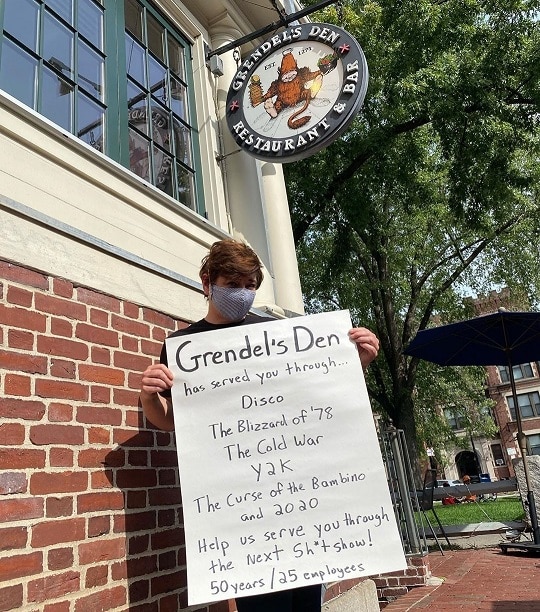 GRENDEL'S DEN
EST. 1971
RESTAURANT & BAR
Grendel's Den
has served you through...
Disco
The Blizzard of '78
The Cold War
Y2K
The Curse of the Bambino
and 2020
Help us serve you through
the Next Sh*tshow!
50 years / 25 employees